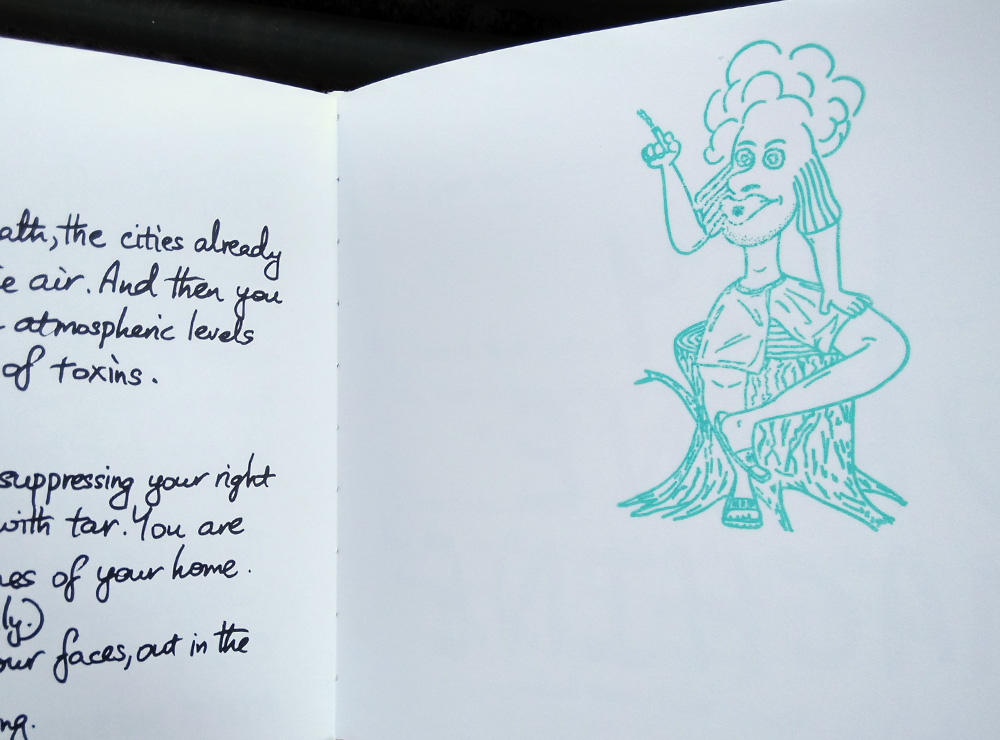 ath, the cities already
e air. And then you
atmospheric levels
of toxins.
suppressing your right
with tar. You are
es of your home.
ly.)
our faces, out in the
ng.